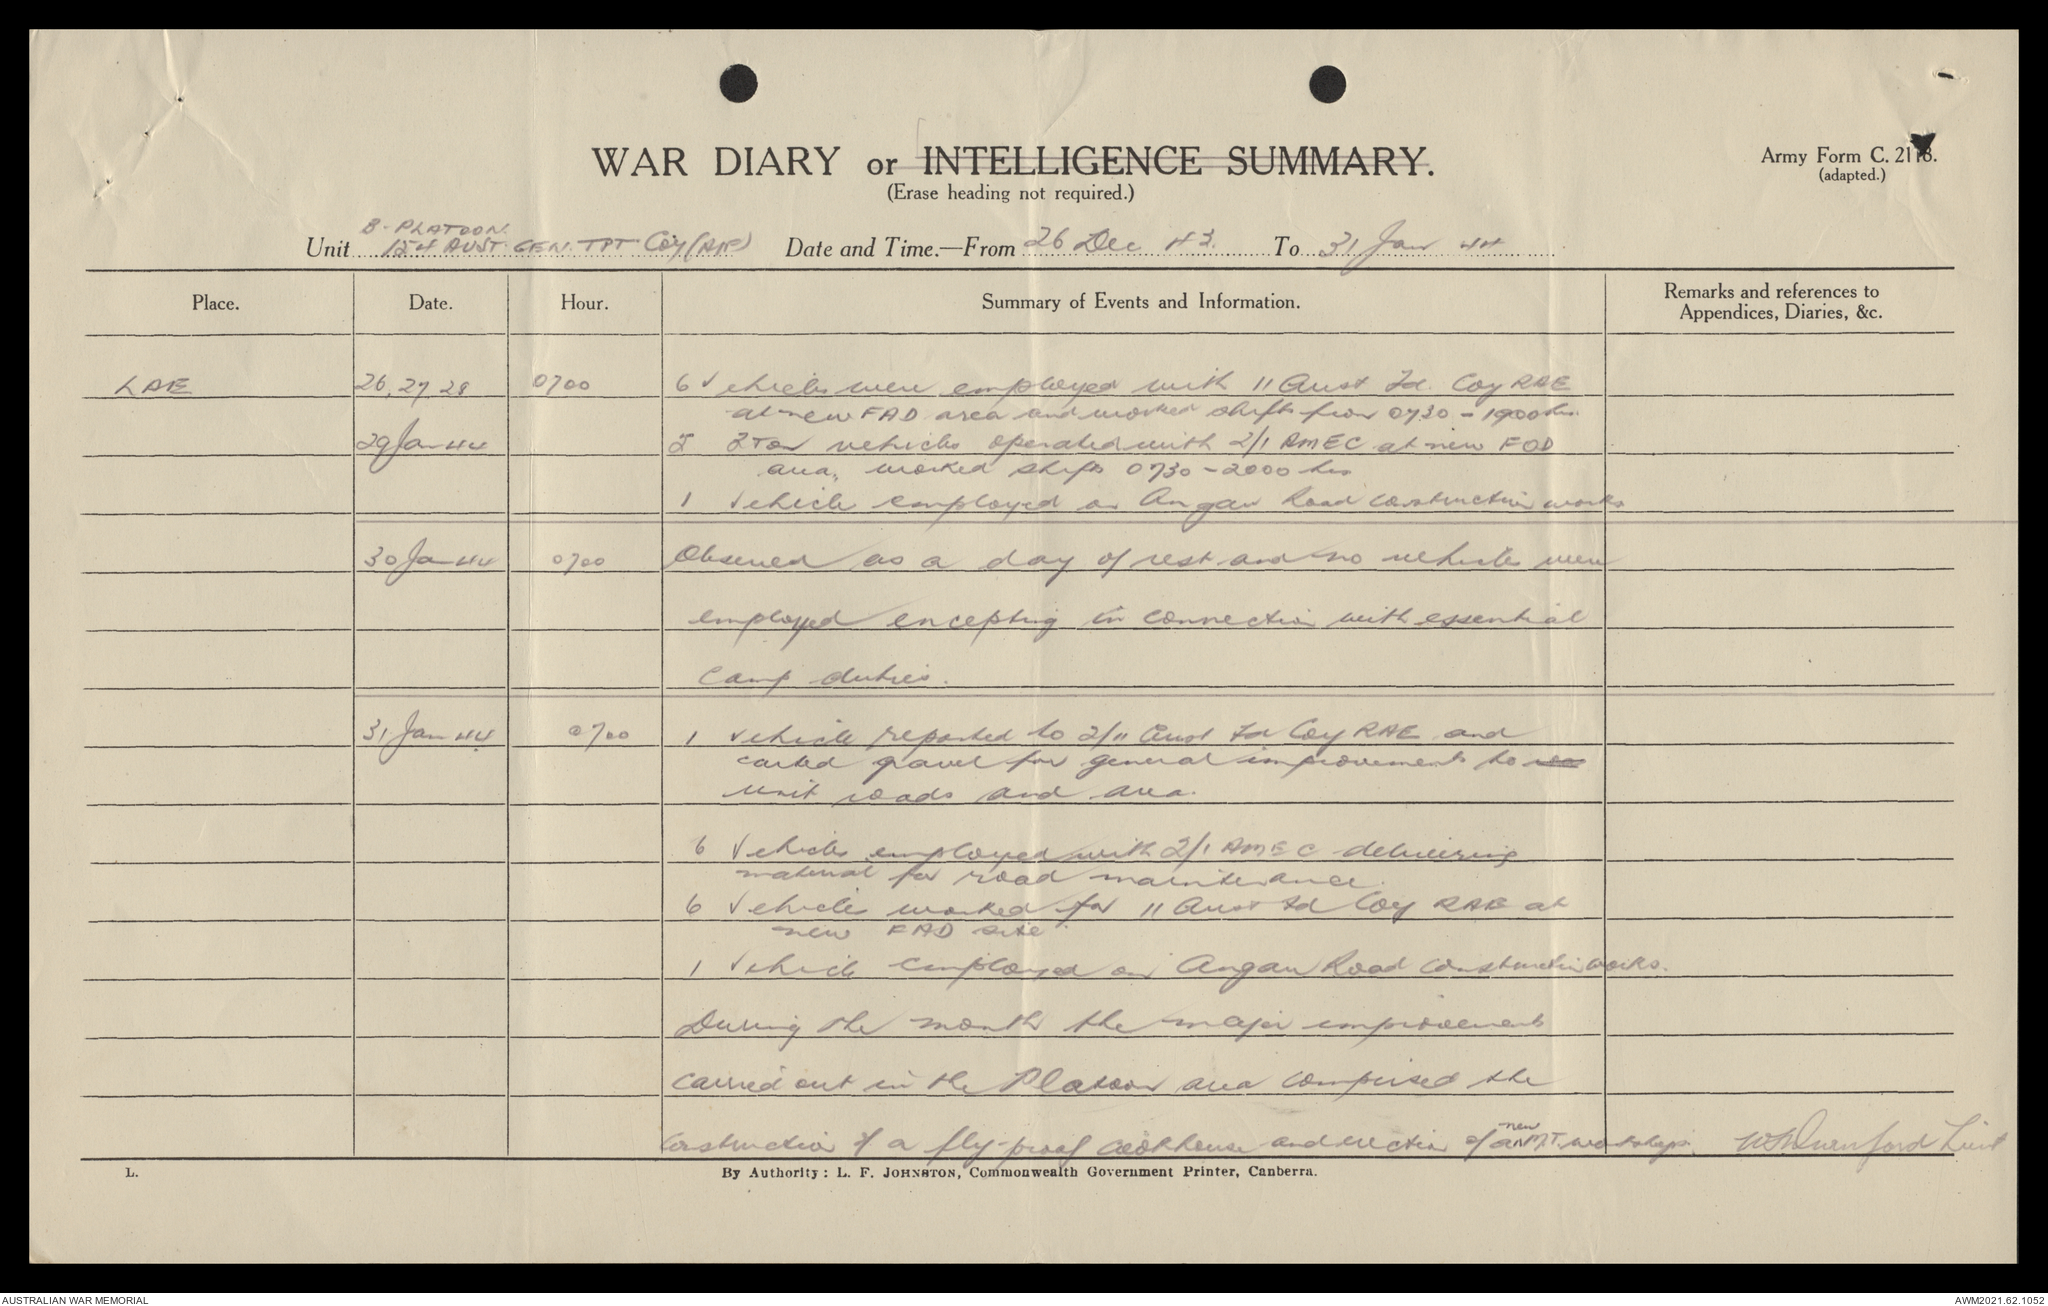 WAR DIARY or INTELLIGENCE SUMMARY.
(Erase heading not required.)
Army Form C. 2118.
(adapted.)
B. PLATOON.
Unit 154 AUST. GEN. TPT Coy (AIF) Date and Time.—From 26 Dec 43. To 31 Jan 44
Place. Date. Hour. Summary of Events and Information. Remarks and references to
Appendices, Diaries, &c.
LAE 26, 27, 28 0700 6 Vehicles were employed with 11 Aust Fd. Coy RAE
at new FAD area and worked shifts from 0730 - 1900 hrs.
29 Jan 44 2 Ton vehicles operated with 2/1 AMEC at new FOD
area, worked shifts 0730 - 2000 hrs
1 Vehicle employed on Angau Road construction works
30 Jan 44 0700 Observed as a day of rest and no vehicles were
employed encepting in connection with essential
camp duties.
31 Jan 44. 0700 1 Vehicle reported to 2/11 Aust Fd Coy RAE and
carted gravel for general improvements to
unit roads and area.
6 Vehicles employed with 2/1 AMEC delivering
material for road maintenance.
6 Vehicles worked for 11 Aust Fd Coy RAE at
new FAD site.
1 Vehicle employed on Angau Road construction works.
During the month the major improvements
carried out in the Platoon area comprised the
new
construction of a fly-proof cookhouse and erection of a M.T. workshops. Durnford Lieut
L.
By Authority: L. F. JOHNSTON, Commonwealth Government Printer, Canberra.
AUSTRALIAN WAR MEMORIAL
AWM2021.62.1052